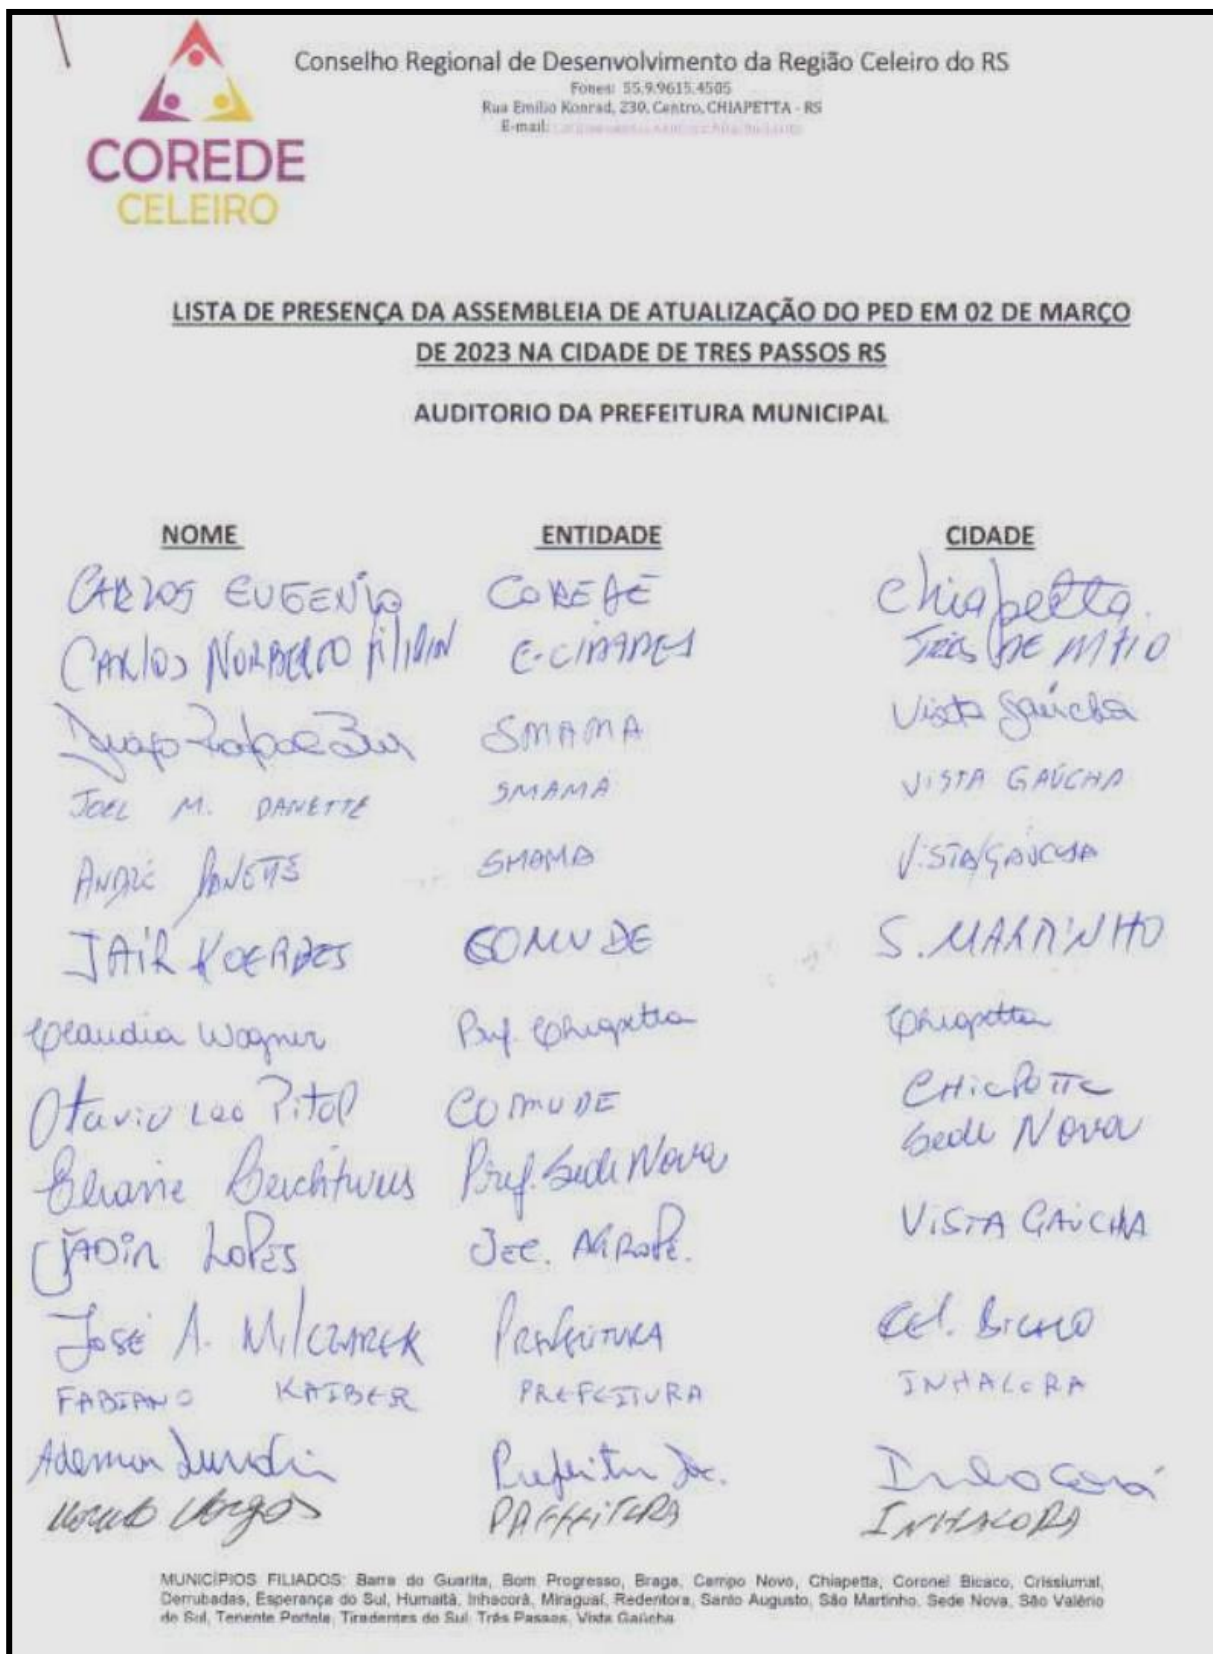 Conselho Regional de Desenvolvimento da Região Celeiro do RS
Fones: 55.9.9615.4505
Rua Emílio Konrad, 230, Centro, CHIAPETTA - RS
E-mail:
COREDE
CELEIRO
LISTA DE PRESENÇA DA ASSEMBLEIA DE ATUALIZAÇÃO DO PED EM 02 DE MARÇO
DE 2023 NA CIDADE DE TRES PASSOS RS
AUDITORIO DA PREFEITURA MUNICIPAL
NOME ENTIDADE CIDADE
CARLOS EUGENIO COREDE Chiapetta.
CARLOS NORBERTO FILIPIN E-CIDADES TRES DE MAIO
SMAMA Vista Gaúcha
JOEL M. DANETTE SMAMA VISTA GAÚCHA
ANDRÉ SMAMA VISTA GAUCHA
JAIR KOERBES COMUDE S. MARTINHO
Claudia Wagner Pref. Chiapetta Chiapetta
Otavio Leo Pitol COMUDE
Pref. Sede Nova Sede Nova
JADIR LOPES SEC. AGROPE. VISTA GAÚCHA
JOSÉ A. MILCZAREK PREFEITURA Cel. BICACO
FABIANO KAIBER PREFEITURA INHACORA
Ademar Inhacorá
Vargas PREFEITURA INHACORA
MUNICÍPIOS FILIADOS: Barra do Guarita, Bom Progresso, Braga, Campo Novo, Chiapetta, Coronel Bicaco, Crissiumal,
Derrubadas, Esperança do Sul, Humaitá, Inhacorá, Miraguai, Redentora, Santo Augusto, São Martinho, Sede Nova, São Valério
do Sul, Tenente Portela, Tiradentes do Sul, Três Passos, Vista Gaúcha